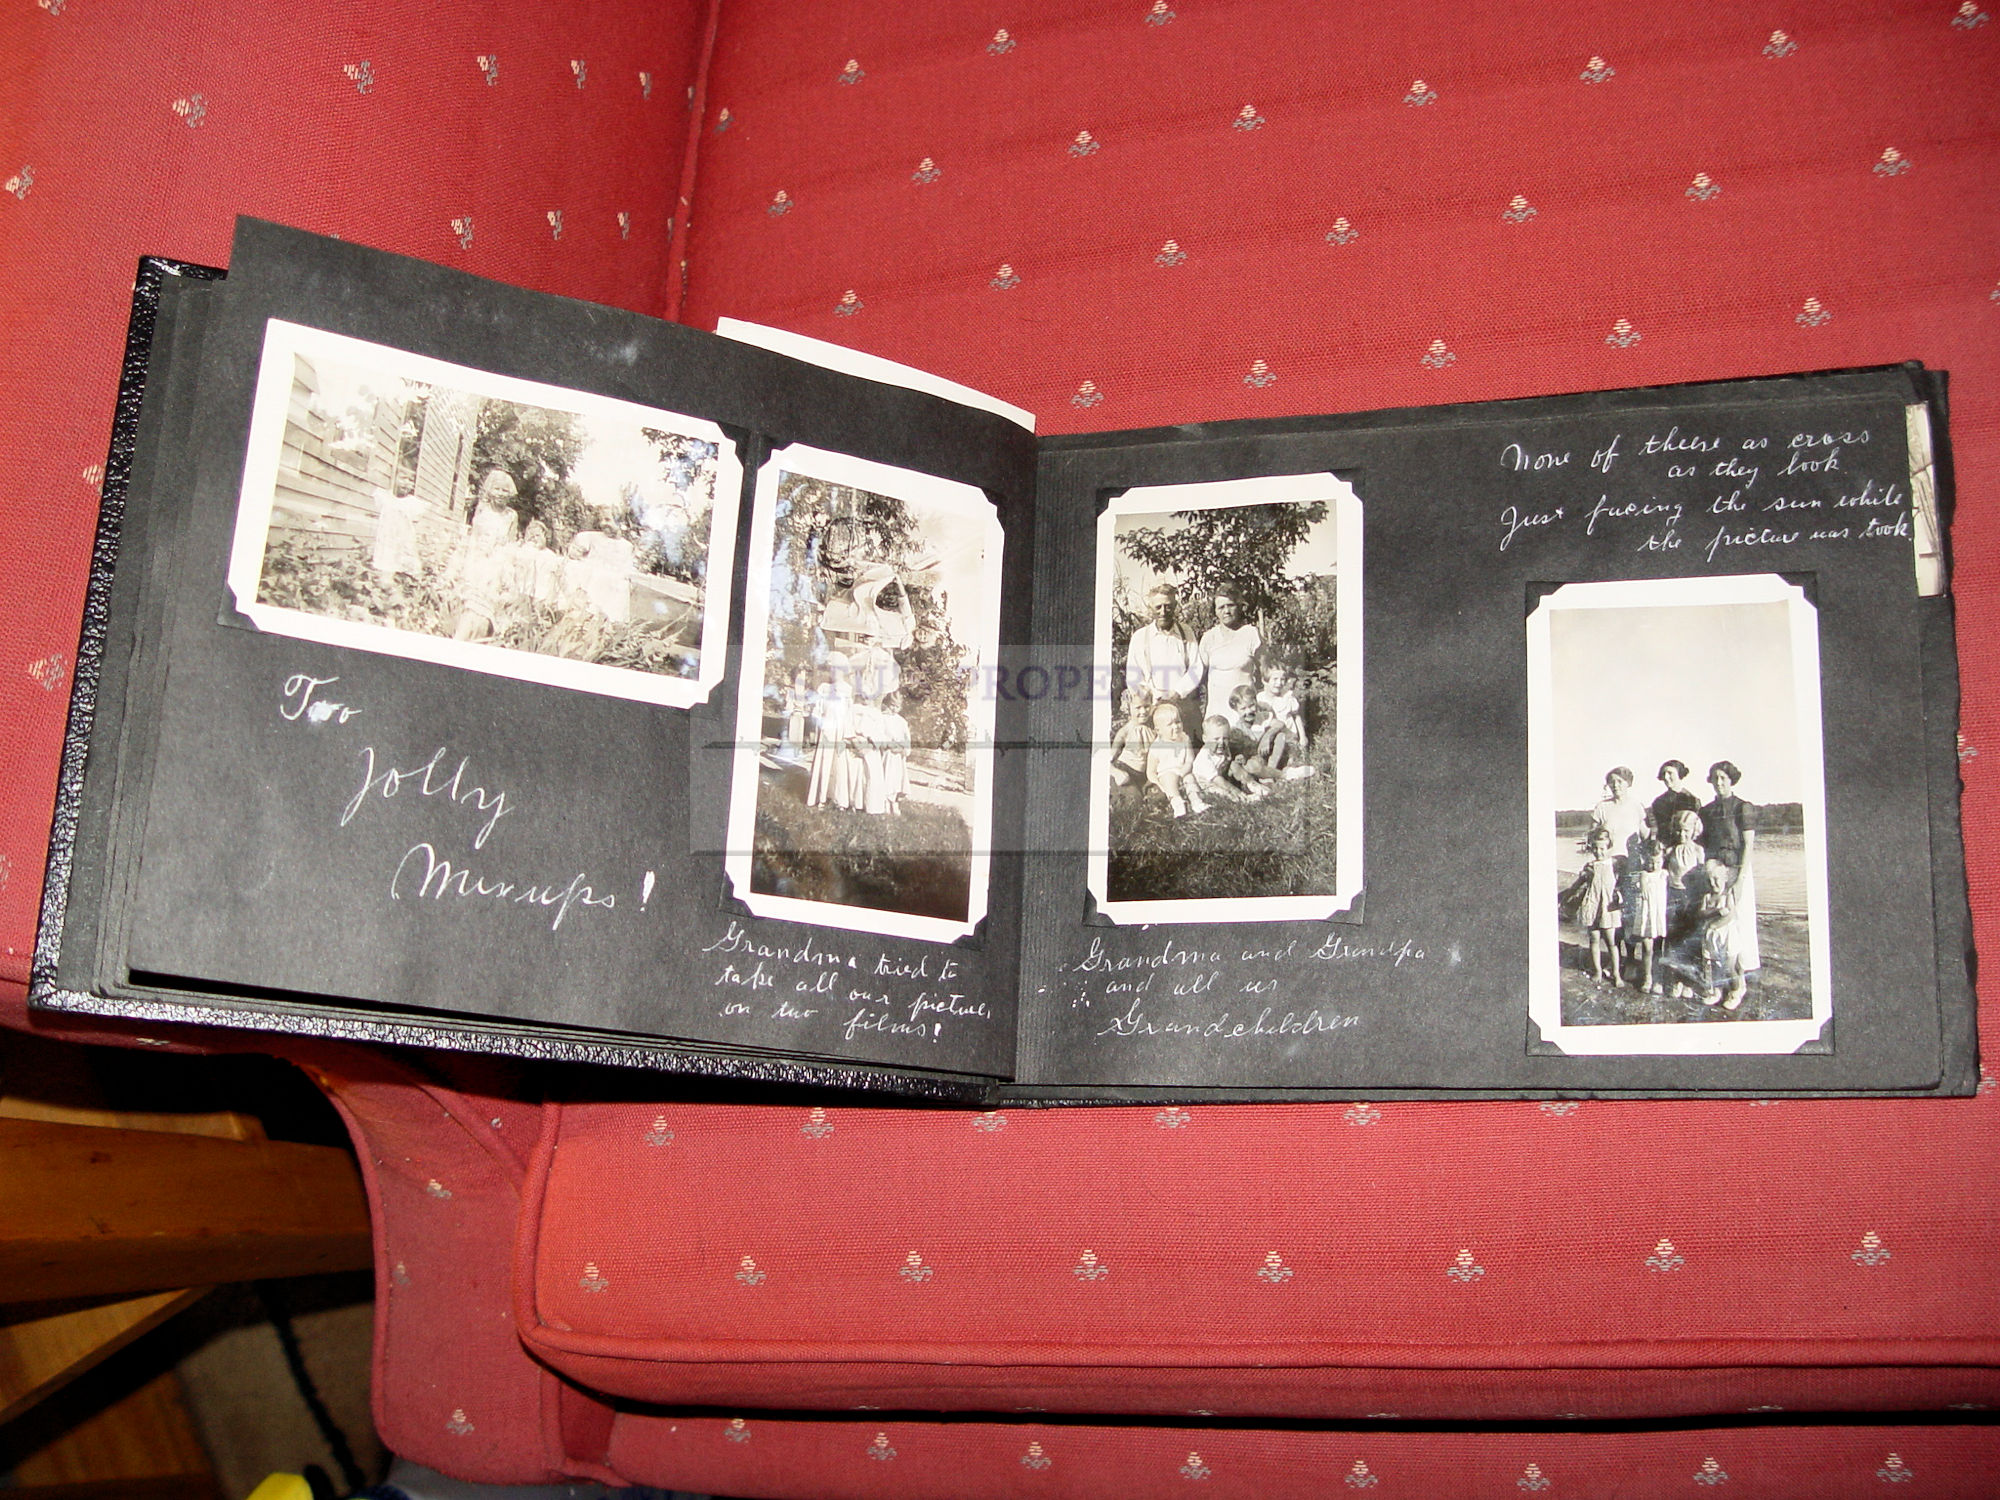 Two
Jolly
Mixups!
Grandma tried to
take all our picture,
on two films!
Grandma and Grandpa
and all us
Grandchildren
None of these as cross
as they look.
Just facing the sun while
the picture was took.
PROPERTY